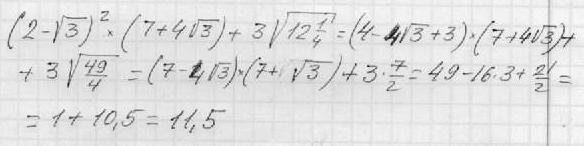 (2-√3)²·(7+4√3)+3√(12 1/4)=(4-4√3+3)·(7+4√3)+
+3√(49/4)=(7-4√3)·(7+√3)+3·7/2=49-16·3+21/2=
=1+10,5=11,5